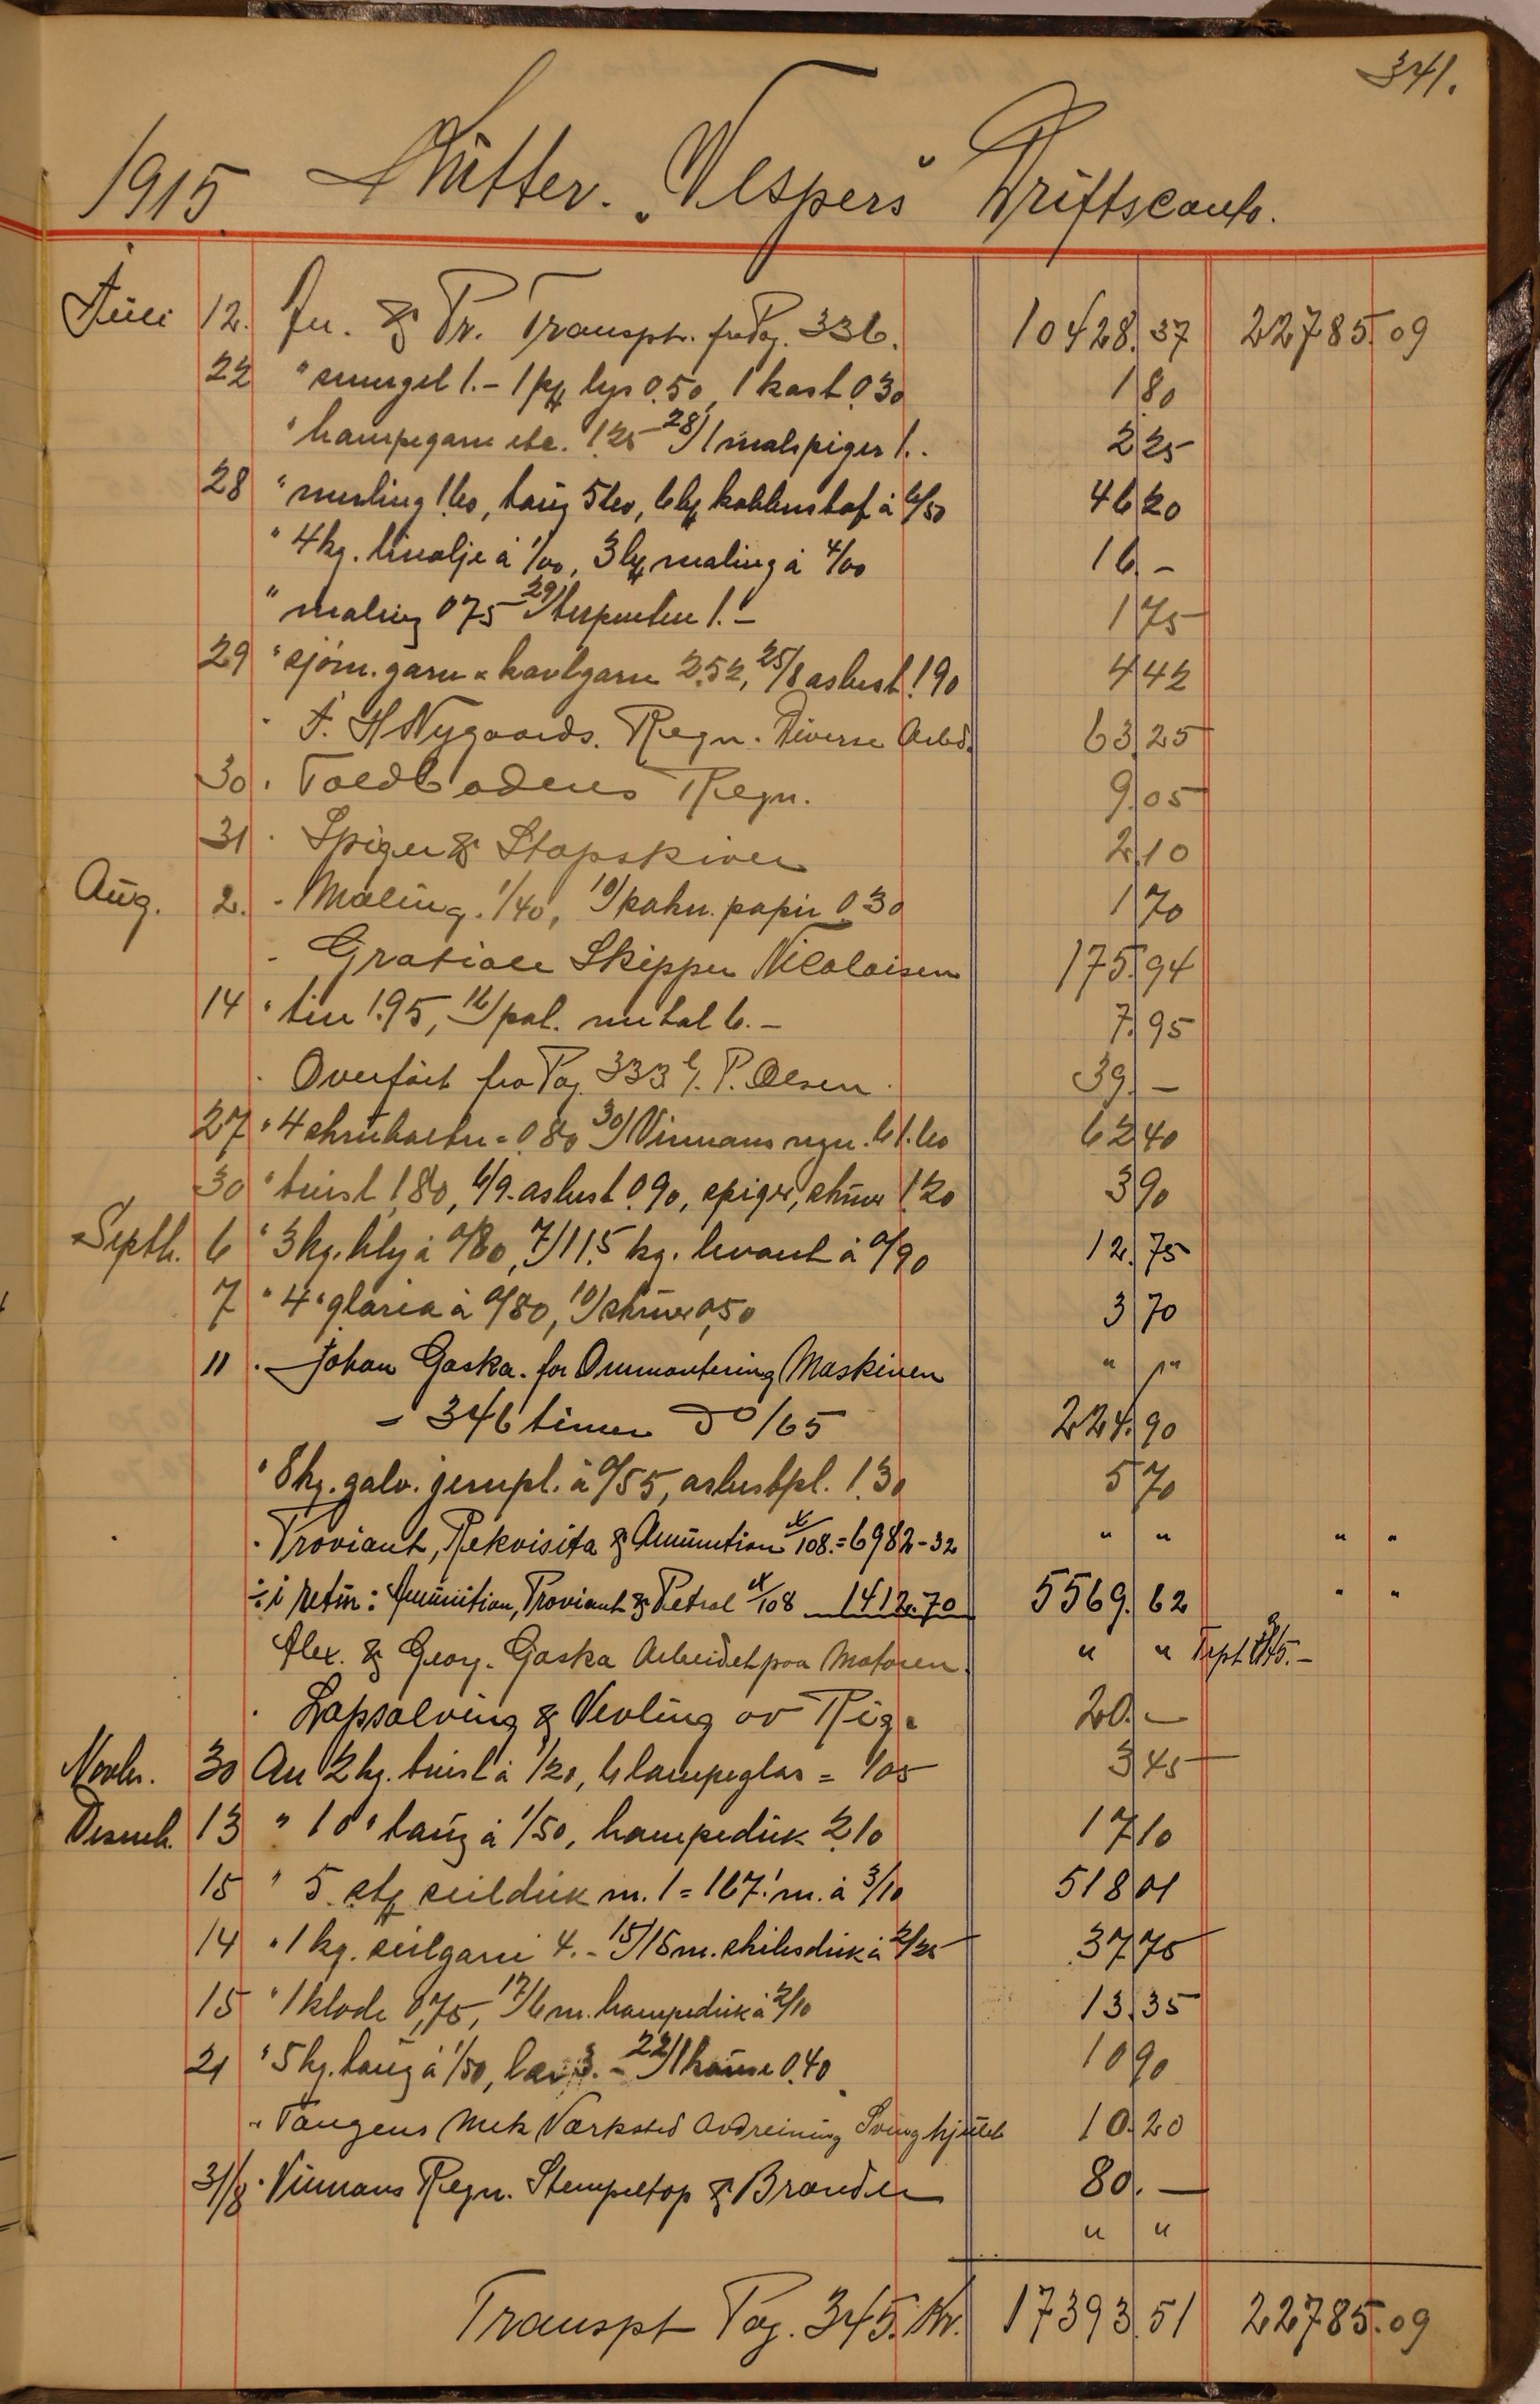 341.
1915. Kutter. "Vespers" Driftsconto.
Juli 12. An. & Pr. Transptr. fra Pag. 336. 10428.37 22785.09
22 " smergel 1.- 1 pk lys 0.50, 1 kost 0.30 1.80
" hampegarn etc. 1.25 28/1 malspiger 1.- 2.25
28 " merling 1.60, taug 5.60, 6 kobberstof à 6/50 46.20
" 4 kg. linolje à 1/00, 3 maling à 4/00 16.-
" maling 0.75 29/ terpentin 1.- 1.75
29 " sjøm. garn & kavlgarn 2.52, 25/8 asbest 1.90 4.42
" Nygaards. Regn. Diverse Arbd. 63.25
30. " Toldbodens Regn. 9.05
31 " Spiger & Stopskiver 2.10
Aug. 2. " Maling. 1/40, 10/ papir 0.30 1.70
" Gratiale Skipper Nicolaisen 175.94
14 " tin 1.95, 16/ pol. metal 6.- 7.95
" Overført fra Pag. 333 P. Olsen. 39.-
27 " 4 = 0.80 30/ Vinnans regn. 61.60 62.40
30 " tvist 1.80, 6/9 asbest 0.90, spiger, skruer 1.20 3.90
Septb. 6 " 3 kg. bly à 0/80, 7/ 11.5 kg. à 0/90 12.75
7 " 4 " à 0/80, 10/ skruer 0,50 3.70
11 " Johan Gaska. for Ommontering Maskinen " "
- 346 timer do /65 224.90
" 8 kg. galv. jernpl. à 0/55, asbestpl. 1.30 5.70
" Proviant, Rekvisita & Amunition /108 = 6982-32 " " " "
÷ i retur: Amunition, Proviant & Petrol /108 1412.70 5569.62 " "
Alex. & Georg. Gaska Arbeidet paa Motoren. " "
" Lapsalving & Vevling av Rig. 20.-
Novbr. 30 An 2 kg. tvist à 1/20, 6 lampeglas = 1/05 3.45
Desemb. 13 " 10 " taug à 1/50, hampeduk 2.10 17.10
15 " 5 seilduk m. 1 = 167.1 m. à 3/10 518.01
14 " 1 kg. seilgarn 4.- 15/ 15 m. duk à 2/25 37.75
15 " 1 klode 0,75, 17/ 6 m. hampeduk à 2/10 13.35
21 " 5 kg. taug à 1/50, 3.- 22/ 1 0.40 10.90
" Tangens Mek Værksted Avdreining Svinghjulet 10.20
31/8 " Vinnans Regn. Stempeltop & Brænder 80.-
" "
Transpt Pag. 345. Kr. 17393.51 22785.09